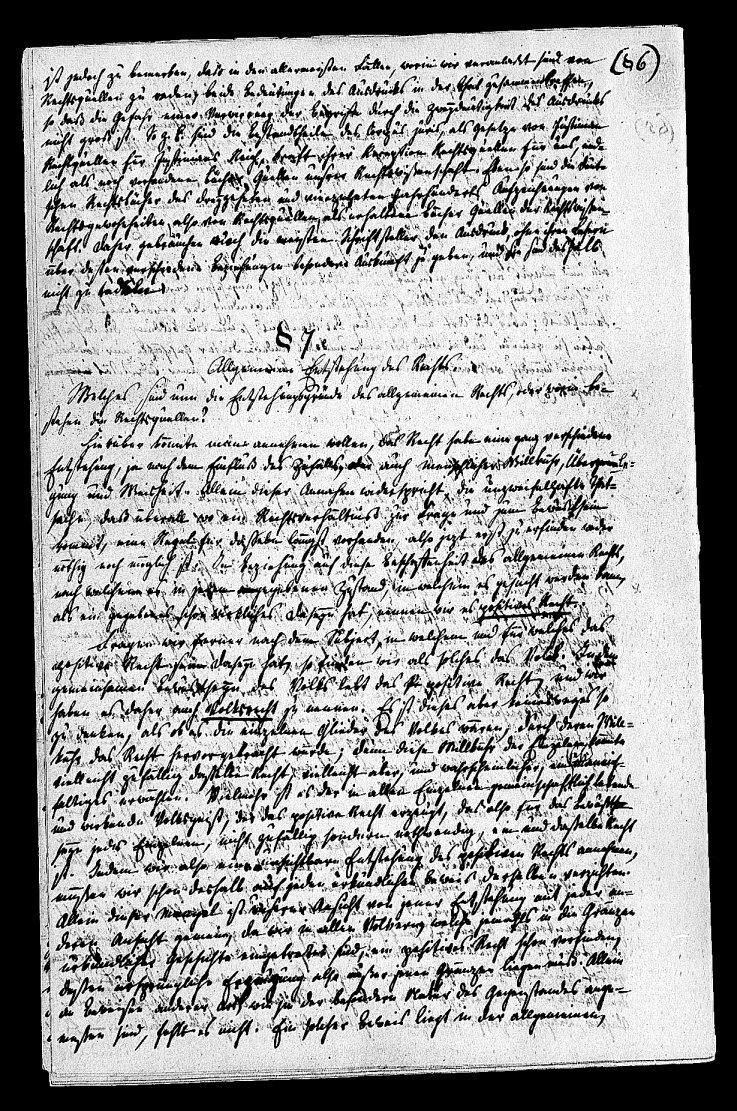 (86)
ist jedoch zu bemerken, daß in den allermeisten Fällen, worin wir veranlaßt sind von
Rechtsquellen zu reden, beide Bedeutungen des Ausdrucks in der That zusammentreffen,
so daß die Gefahr einer Verwirrung der Begriffe durch die Zweydeutigkeit des Ausdrucks
nicht groß ist. So z. B. sind die Bestandtheile des Corpus juris, als Gesetze von Justinian
Rechtsquellen für Justinians Reich, kraft ihrer Reception Rechtsquellen für uns, end-
lich als noch vorhandene Bücher Quellen unsrer Rechtswissenschaft. Ebenso sind die Deut-
schen Rechtsbücher des dreyzehnten und vierzehnten Jahrhunderts Aufzeichnungen von
Rechtsgewohnheiten, also von Rechtsquellen, als erhaltene Bücher Quellen der Rechtswissen-
schaft. Daher gebrauchen auch die meisten Schriftsteller den Ausdruck, ohne ihren Lesern
über dessen verschiedene Beziehungen besondere Auskunft zu geben, und sie sind deshalb
nicht zu tadeln.
§ 7.
Allgemeine Entstehung des Rechts.
Welches sind nun die Entstehungsgründe des allgemeinen Rechts, oder worin be-
stehen die Rechtsquellen?
Hierüber könnte man annehmen wollen, das Recht habe eine ganz verschiedene
Entstehung, je nach dem Einfluß des Zufalls, oder auch menschlicher Willkühr, Überle-
gung und Weisheit. Allein dieser Annahme widerspricht die unzweifelhafte That-
sache, daß überall wo ein Rechtsverhältniß zur Frage und zum Bewußtseyn
kommt, eine Regel für dasselbe längst vorhanden, also jetzt erst zu erfinden weder
nöthig noch möglich ist. In Beziehung auf diese Beschaffenheit des allgemeinen Rechts,
nach welcher es in jedem gegebenen Zustand, in welchem es gesucht werden kann,
als ein gegebenes schon wirkliches Daseyn hat, nennen wir es positives Recht.
Fragen wir ferner nach dem Subject, in welchem und für welches das
positive Recht sein Daseyn hat, so finden wir als solches das Volk. In dem
gemeinsamen Bewußtseyn des Volks lebt das positive Recht, und wir
haben es daher auch Volksrecht zu nennen. Es ist dieses aber keinesweges so
zu denken, als ob es die einzelnen Glieder des Volkes wären, durch deren Will-
kühr das Recht hervorgebracht würde; denn diese Willkühr der Einzelnen könnte
vielleicht zufällig dasselbe Recht, vielleicht aber, und wahrscheinlicher, ein mannich-
faltiges erwählen. Vielmehr ist es der in allen Einzelnen gemeinschaftlich lebende
und wirkende Volksgeist, der das positive Recht erzeugt, das also für das Bewußt-
seyn jedes Einzelnen, nicht zufällig sondern nothwendig, ein und dasselbe Recht
ist. Indem wir also eine unsichtbare Entstehung des positiven Rechts annehmen,
müssen wir schon deshalb auf jeden urkundlichen Beweis derselben verzichten.
Allein dieser Mangel ist unserer Ansicht von jener Entstehung mit jeder an-
deren Ansicht gemein, da wir in allen Völkern, welche jemals in die Gränzen
urkundlicher Geschichte eingetreten sind, ein positives Recht schon vorfinden,
dessen ursprüngliche Erzeugung also außer jenen Gränzen liegen muß. Allein
an Beweisen anderer Art, wie sie der besondern Natur des Gegenstandes ange-
messen sind, fehlt es nicht. Ein solcher Beweis liegt in der allgemeinen,